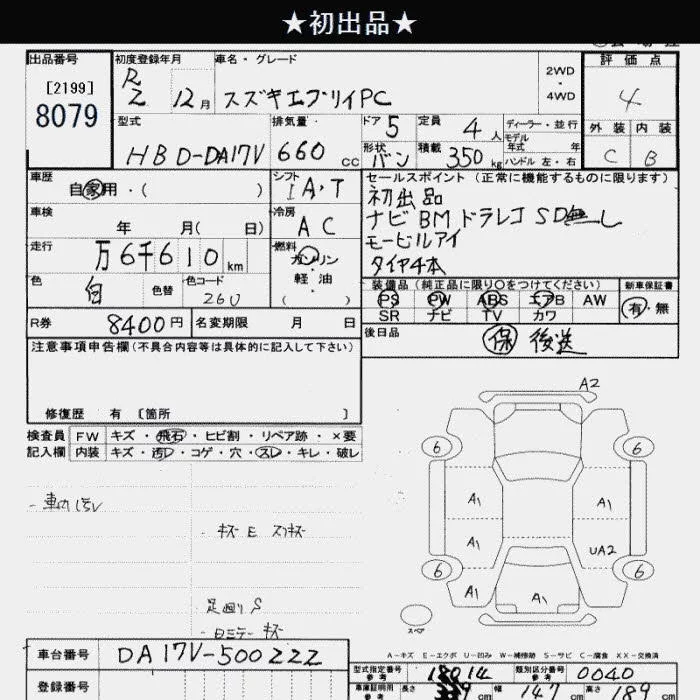 ★初出品★
出品番号
[2199]
8079
初度登録年月
R2 12月
車名・グレード
スズキエブリイPC
2WD
・
4WD
評価点
4
外装 内装
C B
型式
HBD-DA17V
排気量・
660 cc
ドア 5
定員 4人
ディーラー・並行
モデル
年式 年
ハンドル 左・右
形状 バン
積載 350 kg
車歴
自家用・( )
シフト
IA・T
セールスポイント (正常に機能するものに限ります)
初出品
ナビ BM ドラレコ SD無し
モービルアイ
タイヤ4本
車検
年 月( 日)
冷房
AC
走行
万6千610km
燃料
ガソリン
・
軽油
( )
色
白
色替
色コード
26U
装備品(純正品に限り○をつけてください)
新車保証書
PS PW ABS エアB AW
SR ナビ TV カワ
有・無
R券
8400円
名変期限 月 日
後日品
保 後送
注意事項申告欄(不具合内容等は具体的に記入して下さい)
修復歴 有 〔箇所 〕
検査員
記入欄
FW キズ・飛石・ヒビ割・リペア跡・×要
内装 キズ・汚レ・コゲ・穴・スレ・キレ・破レ
キズ E スリキズ
足廻り S
A2
6 6
A1 A1
A1 UA2
6 6
A1 A1
スペア
A-キズ E-エクボ U-凹み W-補修跡 S-サビ C-腐食 XX-交換済
車台番号
DA17V-500222
登録番号
型式指定番号
参考
18014
類別区分番号
参考
0040
車庫証明用
参考
長さ cm
幅 147 cm
高さ 189 cm